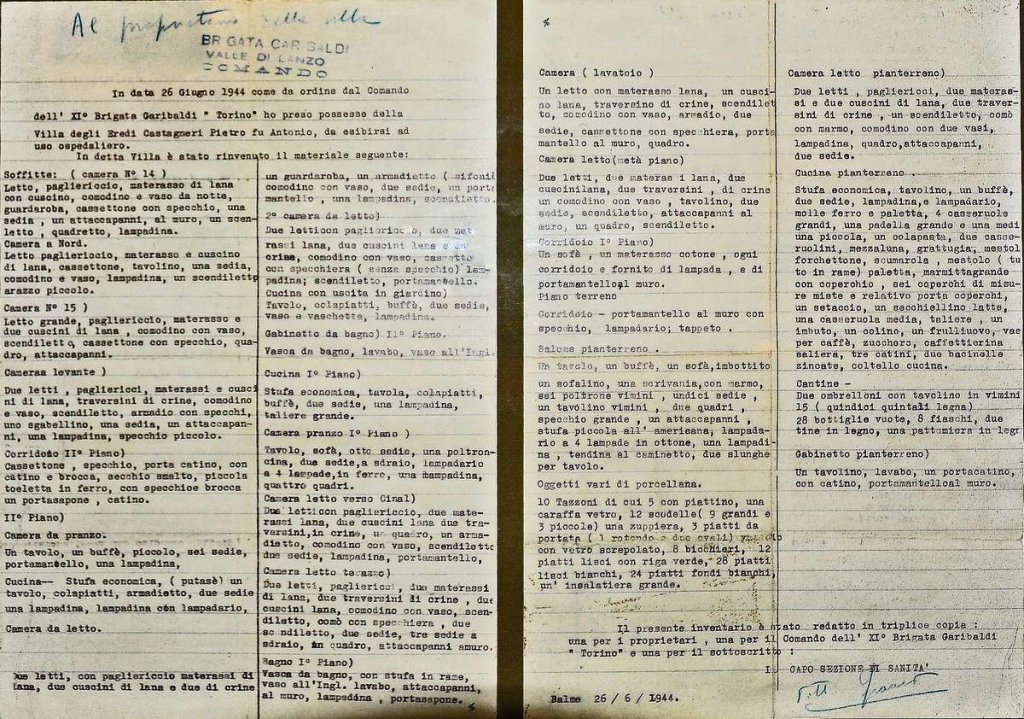 Al proprietario della villa
BRIGATA GARIBALDI
VALLE DI LANZO
COMANDO
In data 26 Giugno 1944 come da ordine dal Comando
dell' XI° Brigata Garibaldi " Torino" ho preso possesso della
Villa degli Eredi Castagneri Pietro fu Antonio, da esibirsi ad
uso ospedaliero.
In detta Villa è stato rinvenuto il materiale seguente:
Soffitte: ( camera N° 14 )
Letto, pagliericcio, materasso di lana
con cuscino, comodino e vaso da notte,
guardaroba, cassettone con specchio, una
sedia , un attaccapanni, al muro, un scen-
letto , quadretto, lampadina.
Camera a Nord.
Letto pagliericcio, materasso e cuscino
di lana, cassettone, tavolino, una sedia,
comodino e vaso, lampadina, un scendiletto
arazzo piccolo.
Camera N° 15 )
Letto grande, pagliericcio, materasso e
due cuscini di lana , comodino con vaso,
scendiletto, cassettone con specchio, qua-
dro, attaccapanni.
Camera levante )
Due letti , pagliericci, materassi e cusci
ni di lana, traversini di crine, comodino
e vaso, scendiletto, armadio con specchi,
uno sgabellino, una sedia, un attaccapan-
ni, una lampadina, specchio piccolo.
Corridoio II° Piano)
Cassettone , specchio, porta catino, con
catino e brocca, secchio smalto, piccola
toeletta in ferro, con specchioe brocca
un portasapone , catino.
II° Piano)
Camera da pranzo.
Un tavolo, un buffè, piccolo, sei sedie,
portamantello, una lampadina,
Cucina-- Stufa economica, ( putasè) un
tavolo, colapiatti, armadietto, due sedie
una lampadina, lampadina con lampadario,
Camera da letto.
Due letti, con pagliericcio materassi di
lana, due cuscini di lana e due di crine
un guardaroba, un armadietto ( sifoniè
comodino con vaso, due sedie, un porta
mantello , una lampadina, scendiletto.
2° camera da letto)
Due letticon pagliericcio, due mat
rassi lana, due cuscini lana e di
crine, comodino con vaso, cassetto
con specchiera ( senza specchio) lam-
padina; scendiletto, portamantello.
Cucina con uscita in giardino)
Tavolo, colapiatti, buffè, due sedie,
vaso e vaschetta, lampadina.
Gabinetto da bagno) II° Piano.
Vasca da bagno, lavabo, vaso all'Ingl.
Cucina I° Piano)
Stufa economica, tavola, colapiatti,
buffè, due sedie, una lampadina,
taliere grande.
Camera pranzo I° Piano )
Tavolo, sofà, otto sedie, una poltron-
cina, due sedie,a sdraio, lampadario
a 4 lampade,in ferro, una lampadina,
quattro quadri.
Camera letto verso Cinal)
Due letticon pagliericcio, due mate-
rassi lana, due cuscini lana due tra-
versini,in crine, un quadro, un arma-
dietto, comodino con vaso, scendiletto
due sedie, lampadina, portamantello,
Camera letto terazzo)
Due letti, pagliericci , due materassi
di lana, due traversini di crine , due
cuscini lana, comodino con vaso, scen-
diletto, comò con specchiera , due
scendiletto, due sedie, tre sedie a
sdraio, un quadro, attaccapanni amuro.
Bagno I° Piano)
Vasca da bagno, con stufa in rame,
vaso all'Ingl. lavabo, attaccapanni,
al muro, lampadina , portasapone.
Camera ( lavatoio )
Un letto con materasso lana, un cusci-
no lana, traversino di crine, scendilet
to, comodino con vaso, armadio, due
sedie, cassettone con specchiera, porta
mantello al muro, quadro.
Camera letto(metà piano)
Due letti, due materas i lana, due
cuscinilana, due traversini , di crine
un comodino con vaso , tavolino, due
sedie, scendiletto, attaccapanni al
muro, un quadro, scendiletto.
Corridoio I° Piano)
Un sofà , un materasso cotone , ogni
corridoio e fornito di lampada , e di
portamantelloal muro.
Piano terreno
Corridoio - portamantello al muro con
specchio, lampadario; tappeto .
Salone pianterreno .
Un tavolo, un buffè, un sofà,imbottito
un sofalino, una scrivania,con marmo,
sei poltrone vimini , undici sedie ,
un tavolino vimini , due quadri ,
specchio grande , un attaccapanni ,
stufa piccola all' americana, lampada-
rio a 4 lampade in ottone, una lampadi-
na , tendina al caminetto, due slunghe
per tavolo.
Oggetti vari di porcellana.
10 Tazzoni di cui 5 con piattino, una
caraffa vetro, 12 scodelle( 9 grandi e
3 piccole) una zuppiera, 3 piatti da
portata ( 1 rotondo e due ovali)
con vetro screpolato, 8 bicchieri, 12
piatti lisci con riga verde, 28 piatti
lisci bianchi, 24 piatti fondi bianchi,
un' insalatiera grande.
Camera letto pianterreno)
Due letti , pagliericci, due materas-
si e due cuscini di lana, due traver-
sini di crine , un scendiletto, comò
con marmo, comodino con due vasi,
lampadina, quadro,attaccapanni,
due sedie.
Cucina pianterreno .
Stufa economica, tavolino, un buffè,
due sedie, lampadina,e lampadario,
molle ferro e paletta, 4 casseruole
grandi, una padella grande e una medi
una piccola, un colapasta, due casse-
ruolini, mezzaluna, grattugia, mestol
forchettone, scumarola , mestolo ( tu
to in rame) paletta, marmittagrande
con coperchio , sei coperchi di misu-
re miste e relativo porta coperchi,
un setaccio, un secchiellino latte,
una casseruola media, taliere , un
imbuto, un colino, un frulliuovo, vas
per caffè, zucchero, caffettierina
saliera, tre catini, due bacinelle
zincate, coltello cucina.
Cantine -
Due ombrelloni con tavolino in vimini
15 ( quindici quintali legna)
28 bottiglie vuote, 8 fiaschi, due
tine in legno, una pattumiera in legn
Gabinetto pianterreno)
Un tavolino, lavabo, un portacatino,
con catino, portamantelloal muro.
Il presente inventario è stato redatto in triplice copia :
una per i proprietari , una per il Comando dell' XI° Brigata Garibaldi
" Torino" e una per il sottoscritto :
IL CAPO SEZIONE DI SANITA'
Balme 26 / 6 / 1944.
Dott